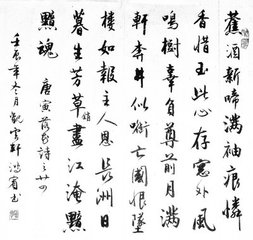 舊酒新啼滿袖痕憐
香惜玉此心存窗外風
鳴樹辜負尊前月滿
軒奔井似銜亡國恨墜
樓如報主人恩長洲日
暮生芳草銷盡江淹黯
黯魂 唐寅落花詩之廿四
壬辰年冬月觀雲軒